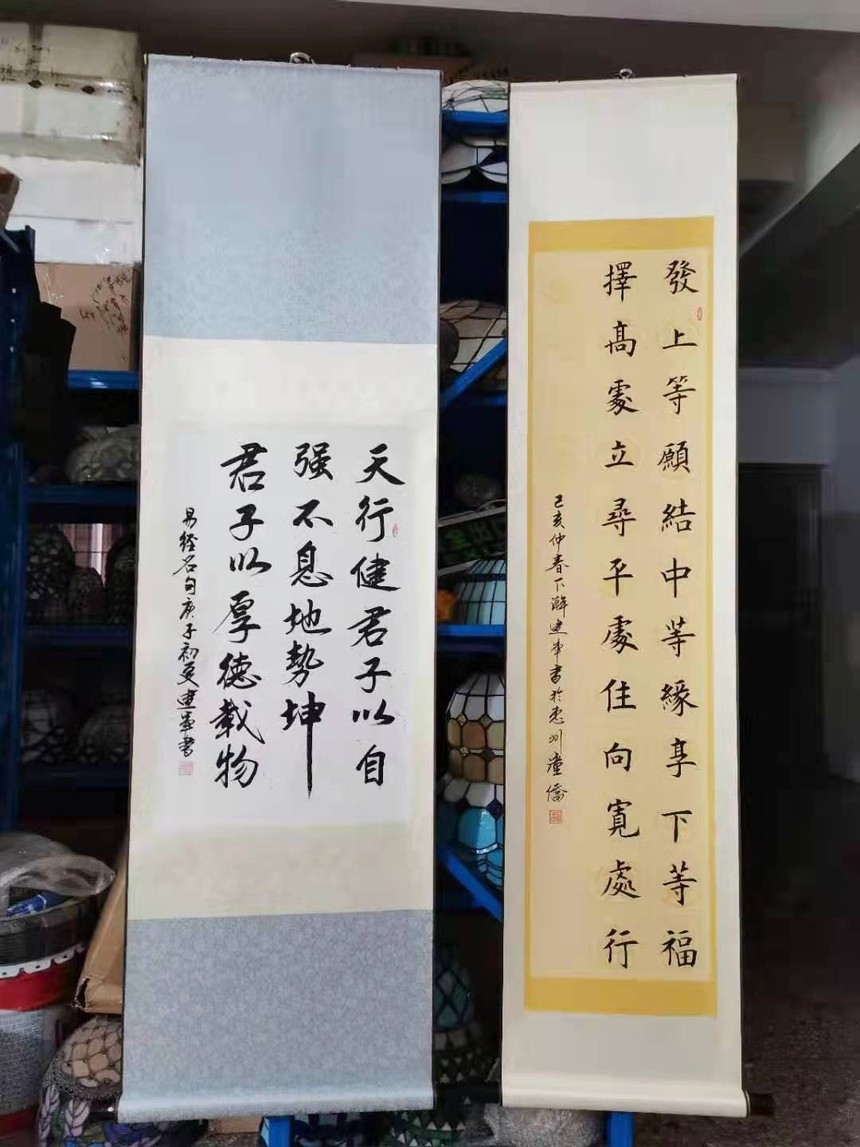 天行健君子以自
强不息地勢坤
君子以厚德載物
易經名句庚子初夏建華書
發上等願結中等緣享下等福
擇高處立尋平處住向寬處行
己亥仲春下澣建華書於惠州潼僑